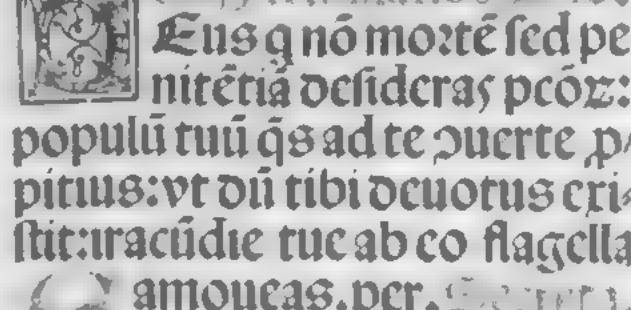 Eus q nō moꝛtē ſed pe
nitētiā deſideras pcōꝝ:
populū tuū q̄s ad te ꝯuerte ꝓ
pitius: vt dū tibi deuotus exi
ſtit: iracūdie tue ab eo flagella
amoueas. per.